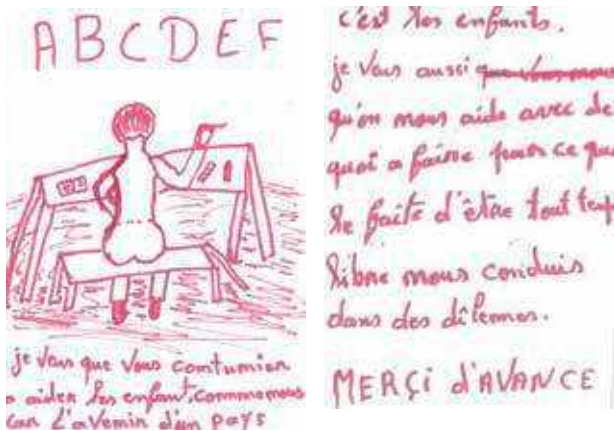 ABCDEF
je veus que vous contunier
a aider les enfant, comme nous
car l'avenir d'un pays
c'est les enfants.
je veus aussi
qu'on nous aide avec de
quoi a faire par ce que
le faite d'être tout temp
libre nous conduis
dans des dîlemes.
MERÇi d'AVANCE